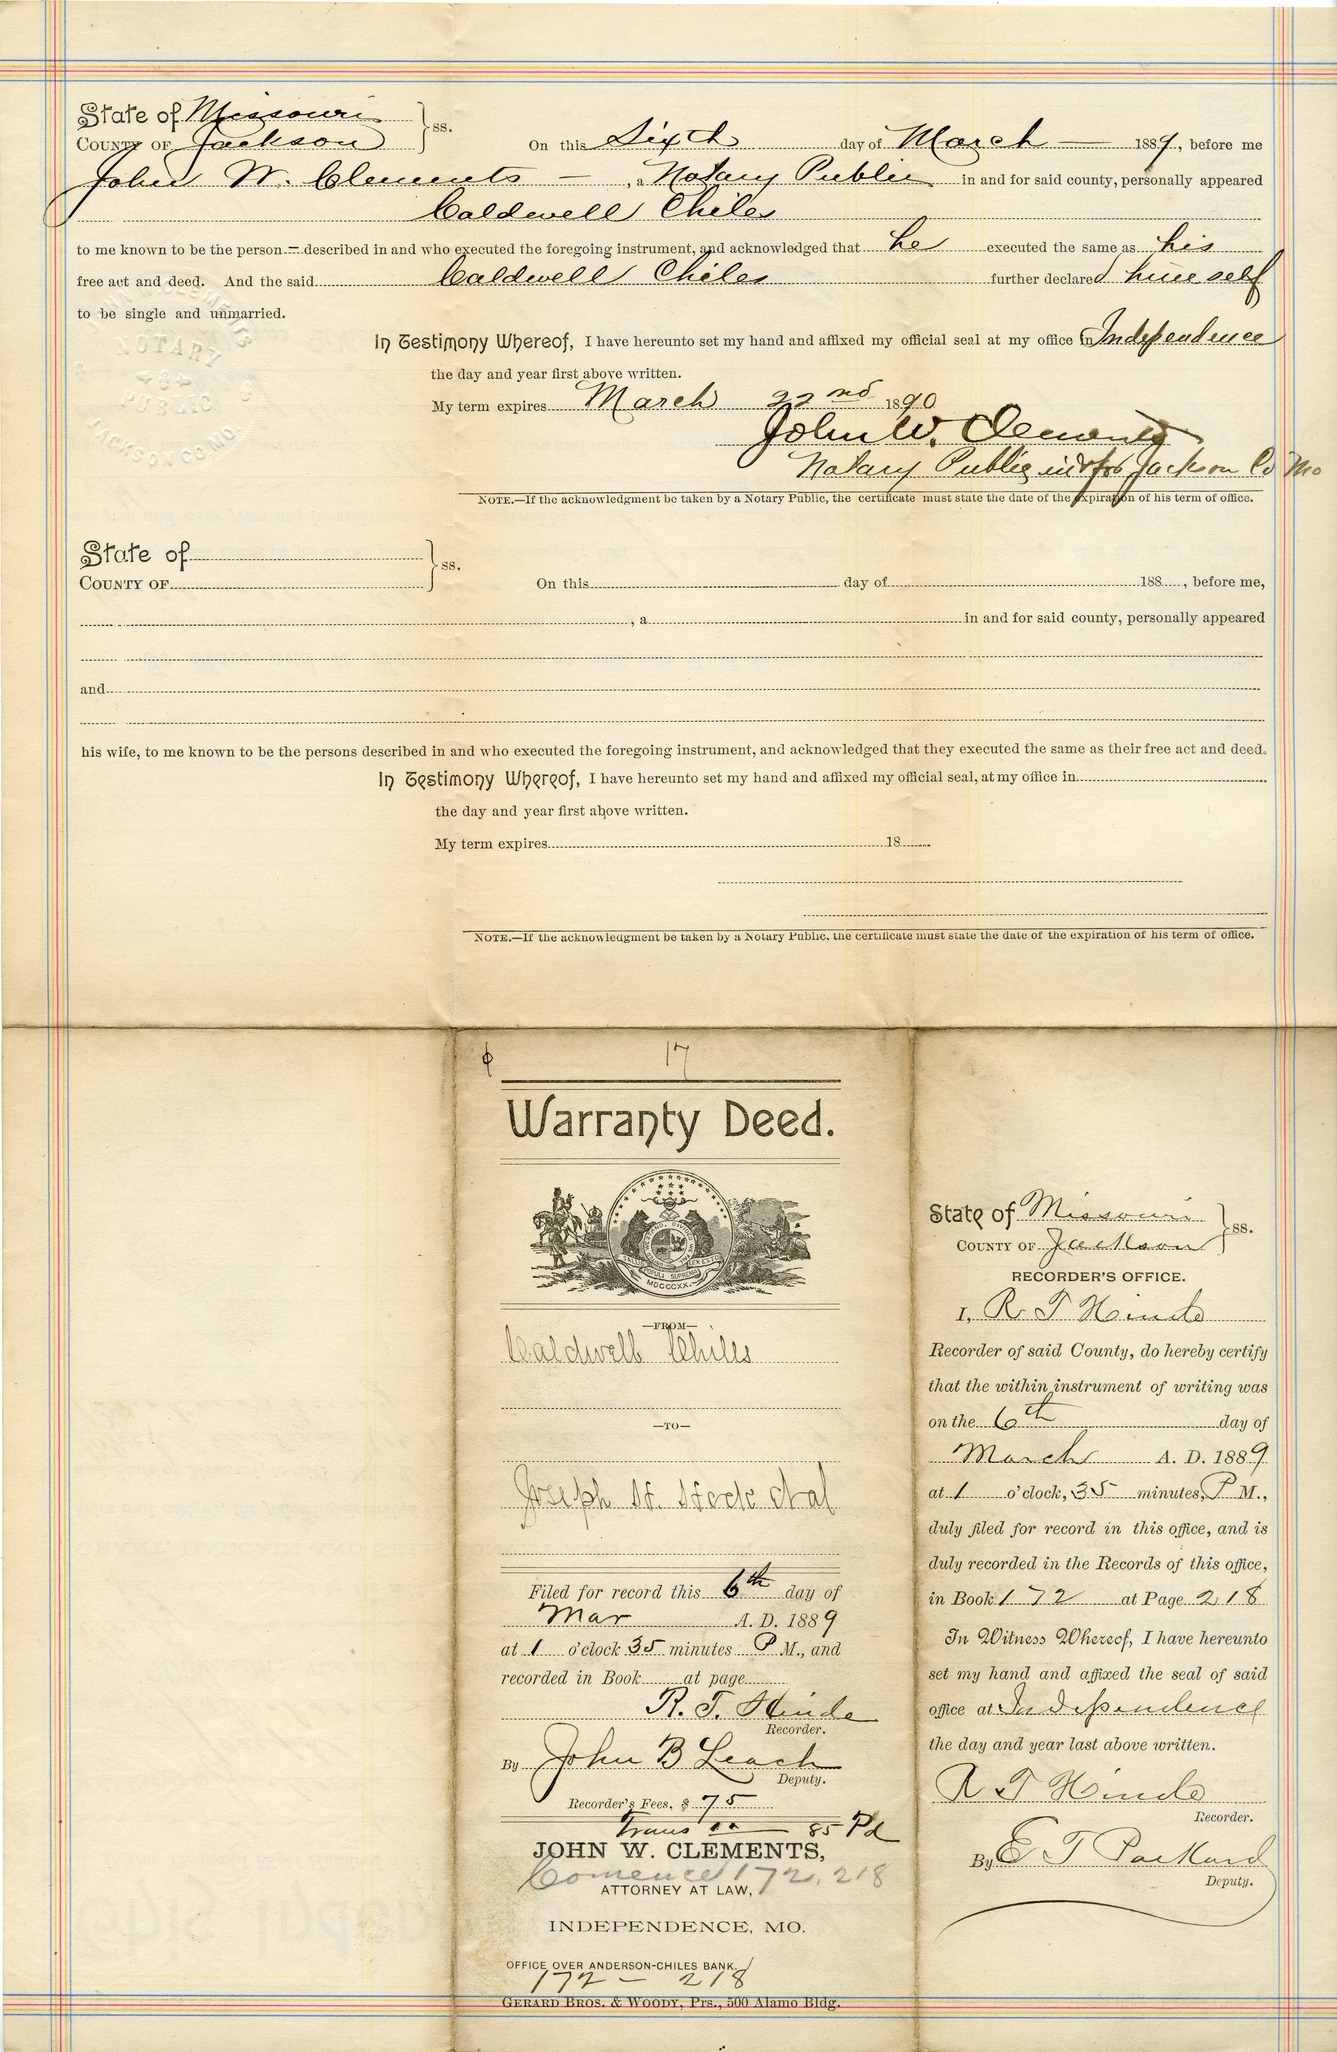 State of Missouri } ss.
COUNTY OF Jackson
On this Sixth day of March — 1889, before me
John W. Clements — , a Notary Public in and for said county, personally appeared
Caldwell Chiles
to me known to be the person = described in and who executed the foregoing instrument, and acknowledged that he executed the same as his
free act and deed. And the said Caldwell Chiles further declared himself
to be single and unmarried.
JOHN W. CLEMENTS
NOTARY
PUBLIC
JACKSON CO MO.
In Testimony Whereof, I have hereunto set my hand and affixed my official seal at my office in Independence
the day and year first above written.
My term expires March 22nd 1890
John W. Clements
Notary Public in & for Jackson Co Mo
NOTE.—If the acknowledgment be taken by a Notary Public, the certificate must state the date of the expiration of his term of office.
State of } ss.
COUNTY OF
On this day of 188 , before me,
, a in and for said county, personally appeared
and
his wife, to me known to be the persons described in and who executed the foregoing instrument, and acknowledged that they executed the same as their free act and deed.
In Testimony Whereof, I have hereunto set my hand and affixed my official seal, at my office in
the day and year first above written.
My term expires 18
NOTE.—If the acknowledgment be taken by a Notary Public, the certificate must state the date of the expiration of his term of office.
17
Warranty Deed.
UNITED WE STAND, DIVIDED WE FALL
SALUS POPULI SUPREMA LEX ESTO
MDCCCXX.
—FROM—
Caldwell Chills
—TO—
Joseph H.
Filed for record this 6th day of
Mar A. D. 1889
at 1 o'clock 35 minutes P M., and
recorded in Book at page
R. T. Hinde
Recorder.
By John B Leach
Deputy.
Recorder's Fees, $ 75
Trans 85 Pd
JOHN W. CLEMENTS,
172, 218
ATTORNEY AT LAW,
INDEPENDENCE, MO.
OFFICE OVER ANDERSON-CHILES BANK.
172 – 218
GERARD BROS. & WOODY, Prs., 500 Alamo Bldg.
State of Missouri } ss.
COUNTY OF Jackson
RECORDER'S OFFICE.
I, R T Hinde
Recorder of said County, do hereby certify
that the within instrument of writing was
on the 6th day of
March A. D. 1889
at 1 o'clock, 35 minutes, P M.,
duly filed for record in this office, and is
duly recorded in the Records of this office,
in Book 172 at Page 218
In Witness Whereof, I have hereunto
set my hand and affixed the seal of said
office at Independence
the day and year last above written.
R T Hinde
Recorder.
By E T Packard
Deputy.